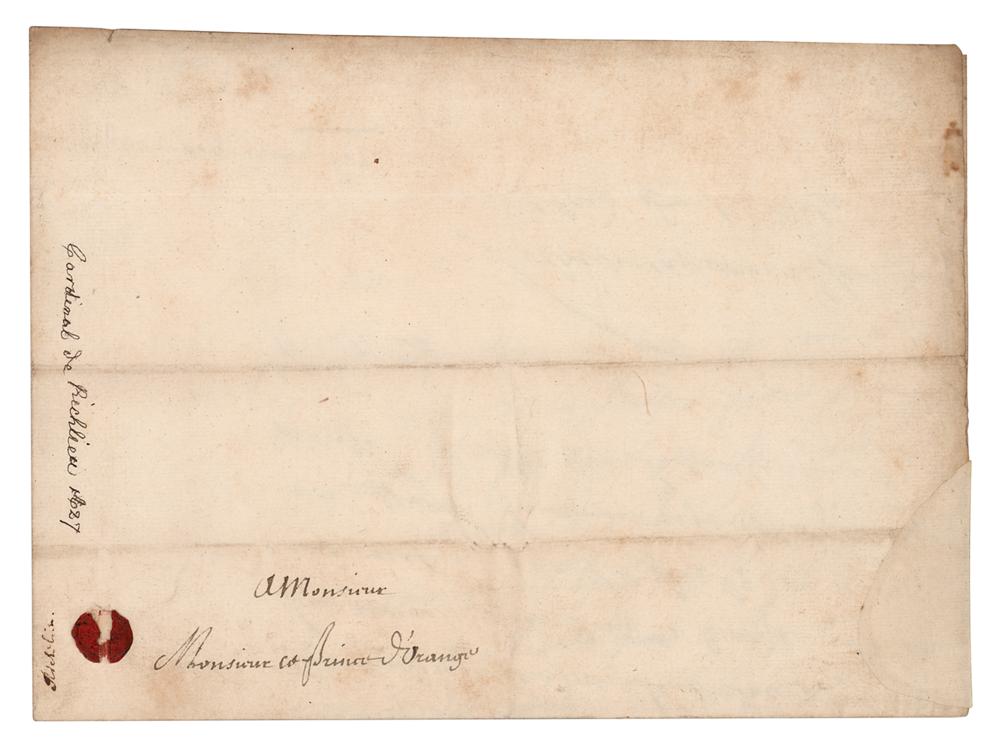 A Monsieur
Monsieur le Prince d'Orange
Cardinal de Richlieu 1627